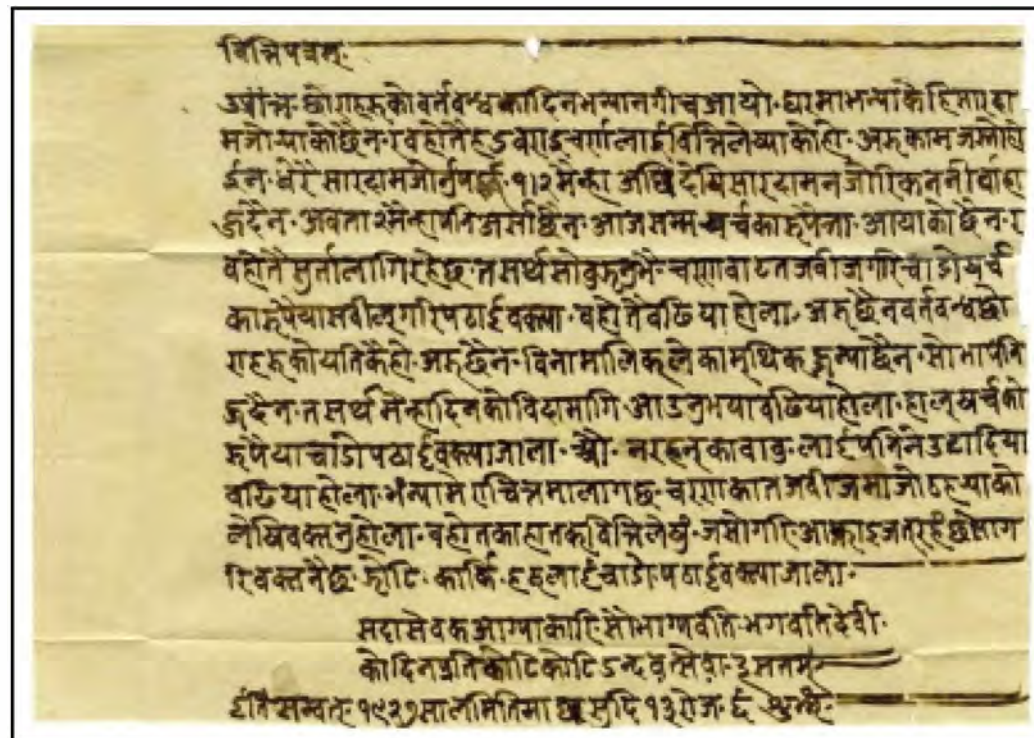 विन्तिपत्रम्·
उप्रान्त· छोराहरुको वर्तवन्धका दिन भन्या नगीच आयो· घरमा भन्या केहि सरदा
म जोर्‍याको छैन· र वहोतै हडवराइ चरणलाई विन्ति लेष्याको हो· अरु काम जस्तो हो
ईन· धेरै सरदाम जोर्नुपर्छ· १।२ मैन्हा अघि देषि सरदाम नजोरिकन नीर्वाह
हुदैन· अव ता २ मैन्हा पनि असाछैन· आज सम्म षर्चका रुपैञा आयाको छैन· र
वहोतै सुर्ता लागिरहेछ· तसर्थ सो वुझनुभै चरणवाट तजवीज् गरि चाडो षर्च
का रुपैया सवील् गरि पठाईवक्स्या· वहोतै वढिया होला· अरु छैन वर्तवन्ध छो
राहरुको यति कै हो· अरु छैन· विना मालिकले काम थिक हुन्या छैन· सोभा पनि
हुदैन· तसर्थ मैन्हा दिनको विदा मागि· आउनुभया वढिया होला· हाल् षर्चको
रुपैया चाडो पठाईवक्स्या जाला· नरहनका वावु लाई पनि नेउटा दिया
वढिया होला· भन्या मेरा चित्रमा लाग्छ· चरणका तजवीजमा जो ठहर्‍याको
लेषिवक्सनु होला· वहोत काहा तक विन्ति लेषुं· जसो गरि आफ्ना इजत रहंछ सो गा
रिवक्सनै छ· झोटि· कार्कि· हरुलाई चाडो· पठाईवक्स्या जाला·
सदा सेवक आग्याकारि सौभाग्यवति· भगवति देवी·
को दिन प्रति कोटि कोटि दन्दवत् सेवा· इ सतम्·
ईति सम्वत् १९२७ साल मिति माघ सुदि १३ रोज· ६ शुभम्·